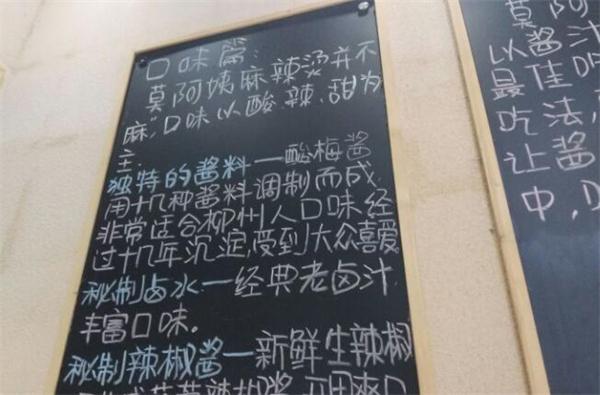 口味篇：
莫阿姨麻辣烫并不
麻"，口味以酸、辣、甜为
主：
独特的酱料—酸梅酱
用十几种酱料调制而成
非常适合柳州人口味经
过十几年沉淀，受到大众喜爱
秘制卤水—经典老卤汁
丰富口味。
秘制辣椒酱—新鲜生辣椒
辣椒酱
莫阿
以酱汁
最佳
吃法，
让酱
中，